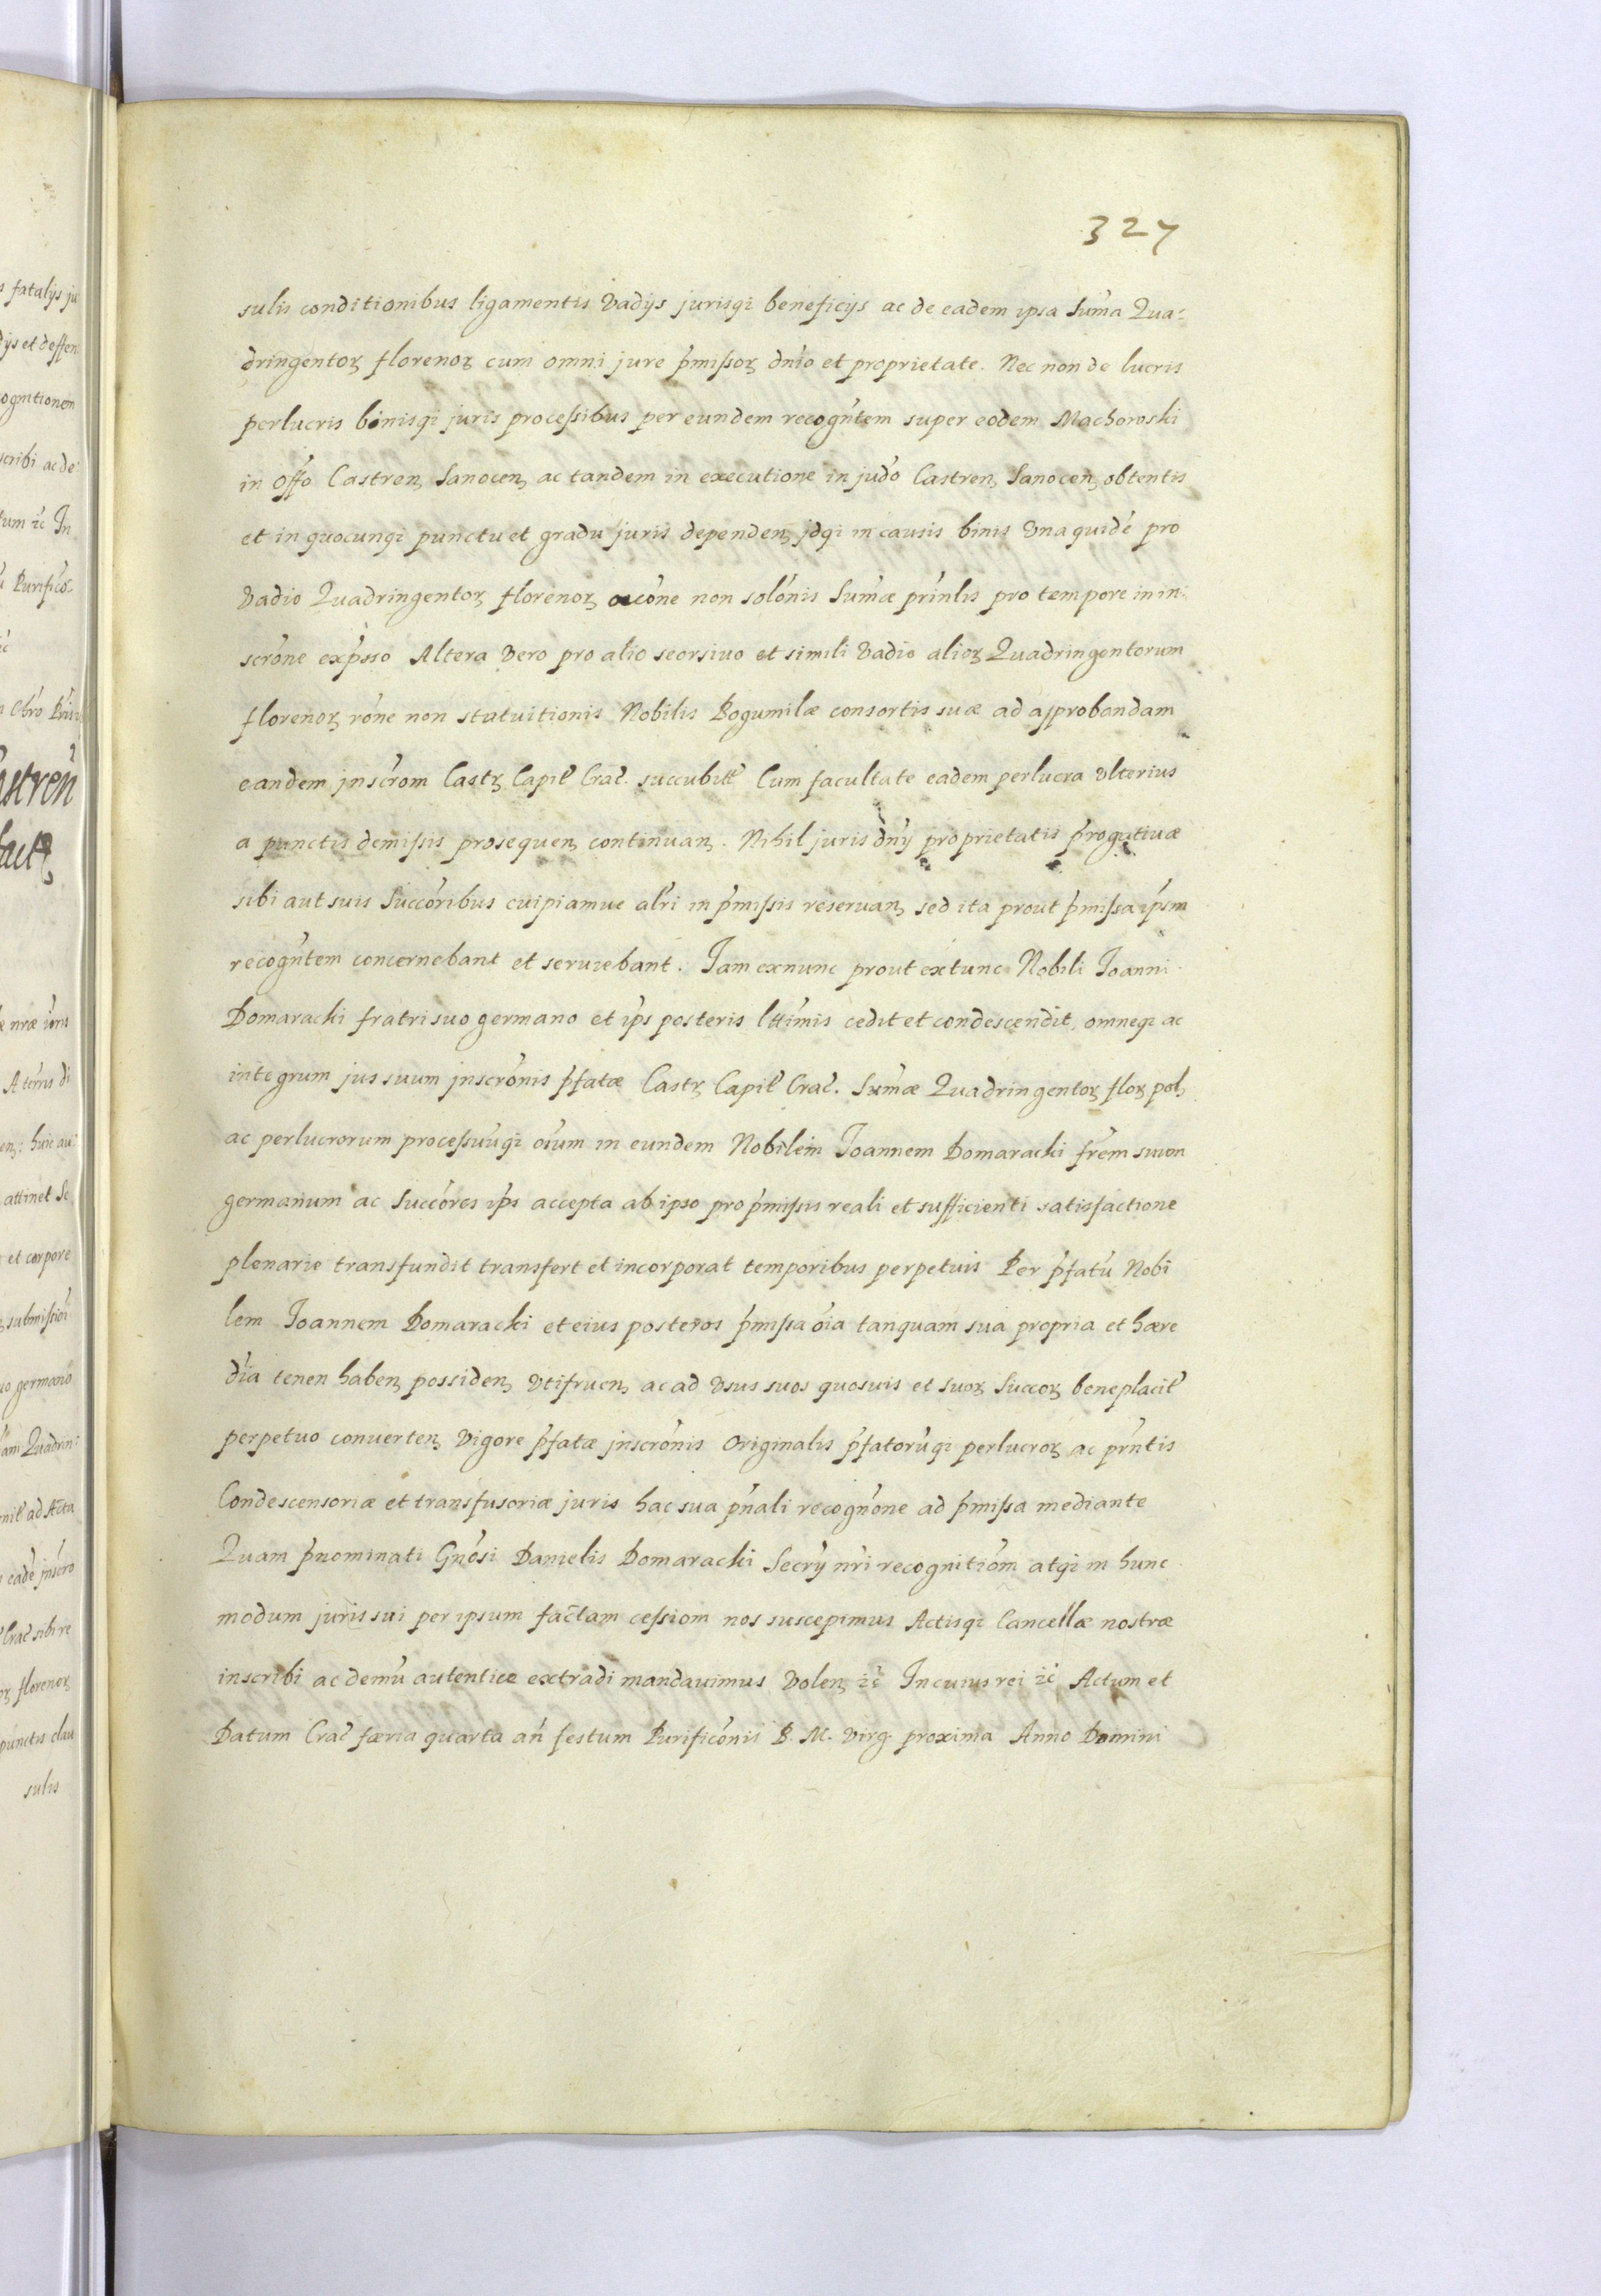 327
sulis conditionibus ligamentis Vadijs jurisqꝫ beneficijs ac de eadem ipsa Sum̃a Qua-
dringentoꝝ florenoꝝ cum omni jure p̃missoꝝ dn̄io et proprietate. Nec non de lucris
perlucris binisqꝫ juris processibus per eundem recogn̄tem super eodem Machoroski
in Offo Castren̨ Sanocen̨ ac tandem in executione in judo Castren̨ Sanocen̨ obtentis
et in quocunqꝫ punctu et gradu juris dependen̨ jdqꝫ in causis binis Vna quidē pro
Vadio Quadringentoꝝ florenoꝝ non solōnis Sum̃æ prin̄lis pro tempore in in-
scrōne exp̃sso Altera Vero pro alio seorsiuo et simili Vadio alioꝝ Quadringentorum
florenoꝝ rōne non statuitionis Nobilis Bogumilæ consortis suæ ad approbandam
eandem jnscrōm Castꝝ Capitᵗ Crac̃. succubitᵗ Cum facultate eadem perlucra Vlterius
a punctis demissis prosequen̨ continuan̨. Nihil juris dn̄ij proprietatis p̃rogatiuæ
sibi aut suis Succōribus cuipiamue altr̃i in p̃missis reseruan̨ sed ita prout p̃missa ip̃sm
recogn̄tem concernebant et seruiebant. Iam exnunc prout extunc Nobili Joanni
Domaracki fratri suo germano et ip̃s posteris lttīmis cedit et condescendit, omneqꝫ ac
integrum jus suum jnscrōnis p̃fatæ Castꝝ Capitᵗ Crac̃. Sum̃æ Quadringentoꝝ floꝝ pol̨
ac perlucrorum processuūqꝫ oīum in eundem Nobilem Joannem Domaracki frēm suum
germanum ac Succōres ip̃s accepta ab ipso pro p̃missis reali et sufficienti satisfactione
plenarie transfundit transfert et incorporat temporibus perpetuis Per p̃fatū Nobi
lem Joannem Domaracki et eius posteros p̃missa oīa tanquam sua propria et hære
dīa tenen haben̨ possiden̨ Vtifruen̨ ac ad Vsus suos quosuis et suoꝝ Succoꝝ beneplacitᵗ
perpetuo conuerten̨ Vigore p̃fatæ jnscrōnis Originalis p̃fatorūqꝫ perlucroꝝ ac prn̄tis
Condescensoriæ et transfusoriæ juris hac sua p̃nali recogn̄one ad p̃missa mediante
Quam p̃nominati Gnōsi Danielis Domaracki Secrīj nr̃i recognitiōm atqꝫ in hunc
modum juris sui per ipsum factam cessiom nos suscepimus Actisqꝫ Cancellæ nostræ
inscribi ac demū autentice extradi mandauimus Volen̨ ꝛc̄ In cuius rei ꝛc̄ Actum et
Datum Crac̃ færia quarta an̄ festum Purificōnis B. M. Virg. proxima Anno Domini